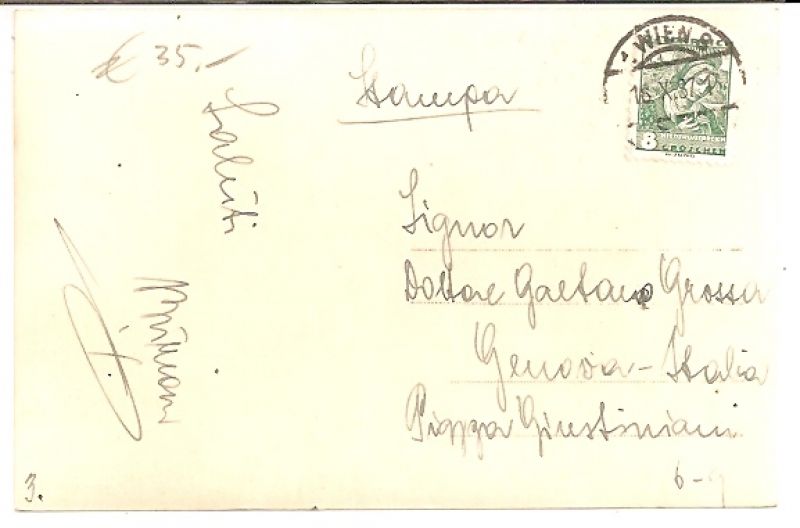 € 35.-
Stampa
WIEN
8
GROSCHEN
Saluti
Signor
Dottore Gaetano Grossa
Genova - Italia
Piazza Giustiniani
6-9
3.